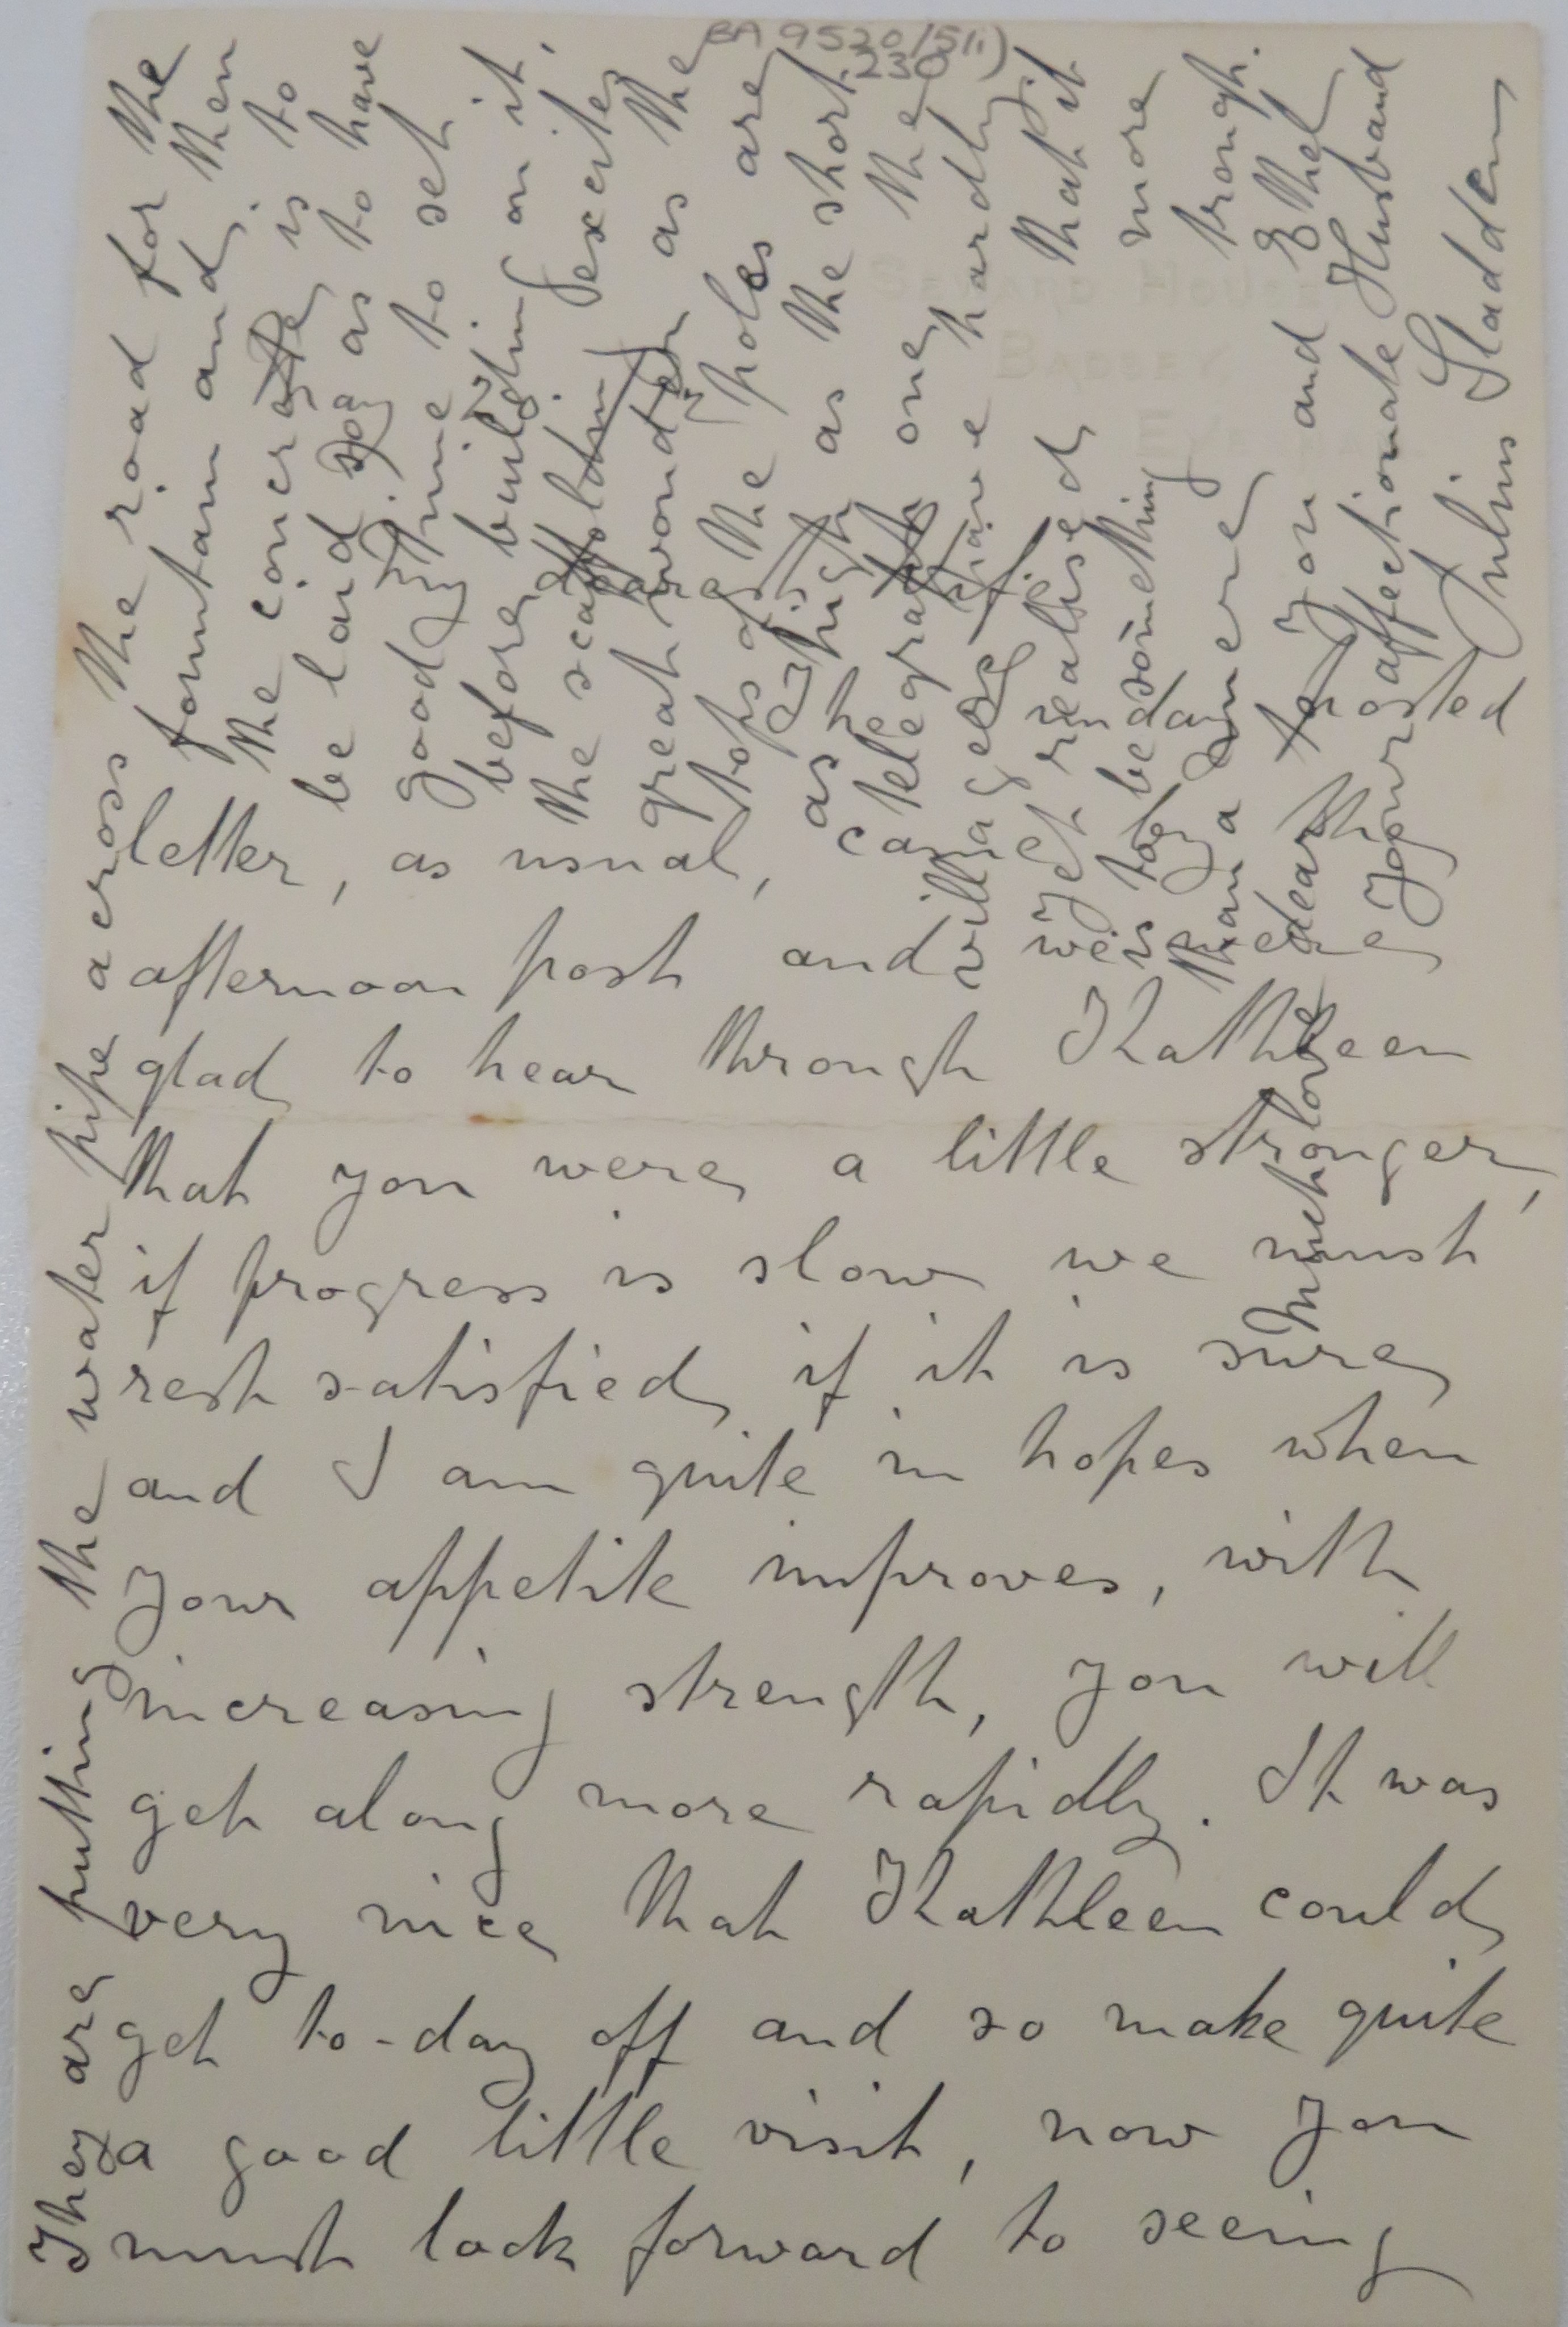 BA 9520/5(i)
230
SEWARD HOUSE,
BADSEY,
My dearest Wife
Sunday posted
letter, as usual, came by the
afternoon post and we were
glad to hear through Kathleen
that you were a little stronger,
if progress is slow we must
rest satisfied if it is sure
and I am quite in hopes when
your appetite improves, with
increasing strength, you will
get along more rapidly. It was
very nice that Kathleen could
get to-day off and so make quite
a good little visit, now you
must look forward to seeing
They are putting the water pipe across the road for the
fountain and then
the concrete is to
be laid so as to have
good time to set
before building on it.
the scaffolding excites
great wonder as the
tops of the poles are
as high as the short
telegraph one the
villagers have hardly
yet realised that it
is to be something more
than a mere trough.
Much love dear to you and Ethel
Your affectionate Husband
Julius Sladden